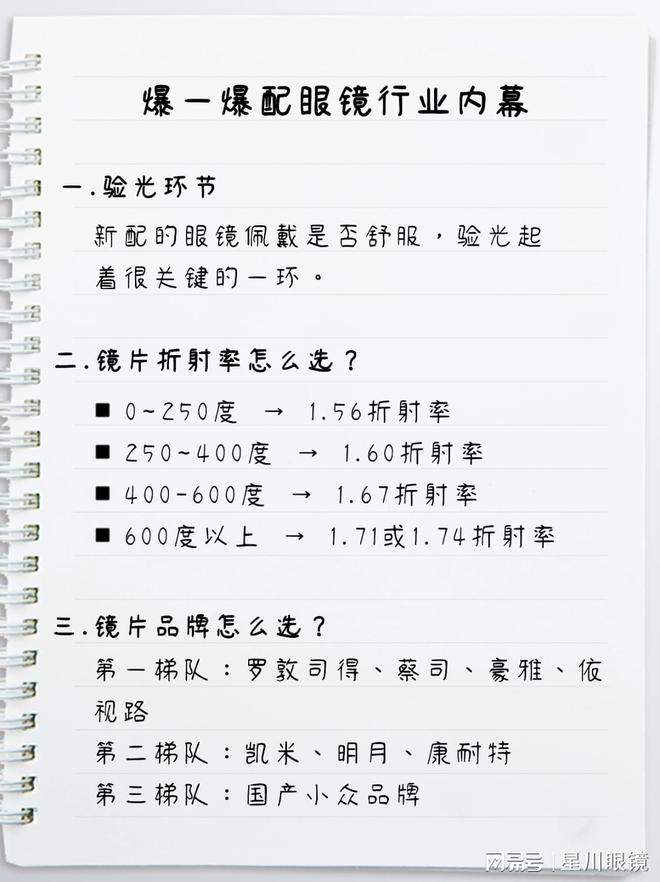 爆一爆配眼镜行业内幕
一.验光环节
新配的眼镜佩戴是否舒服，验光起
着很关键的一环。
二.镜片折射率怎么选？
■ 0~250度 → 1.56折射率
■ 250~400度 → 1.60折射率
■ 400-600度 → 1.67折射率
■ 600度以上 → 1.71或1.74折射率
三.镜片品牌怎么选？
第一梯队：罗敦司得、蔡司、豪雅、依
视路
第二梯队：凯米、明月、康耐特
第三梯队：国产小众品牌
网易号 | 星川眼镜